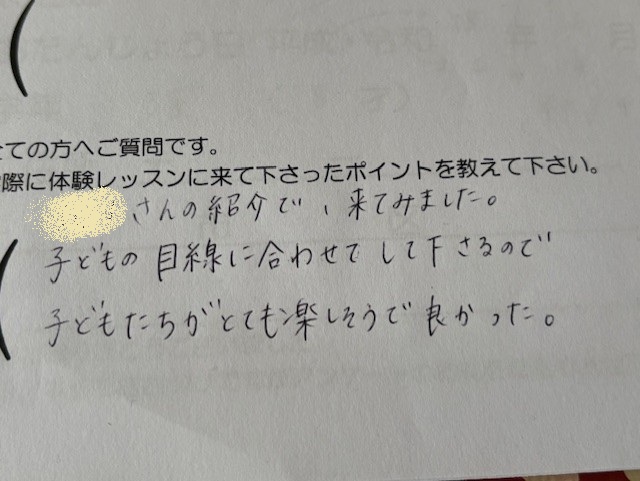 (
全ての方へご質問です。
実際に体験レッスンに来て下さったポイントを教えて下さい。
さんの紹介で、来てみました。
( 子どもの目線に合わせてして下さるので
子どもたちがとても楽しそうで良かった。